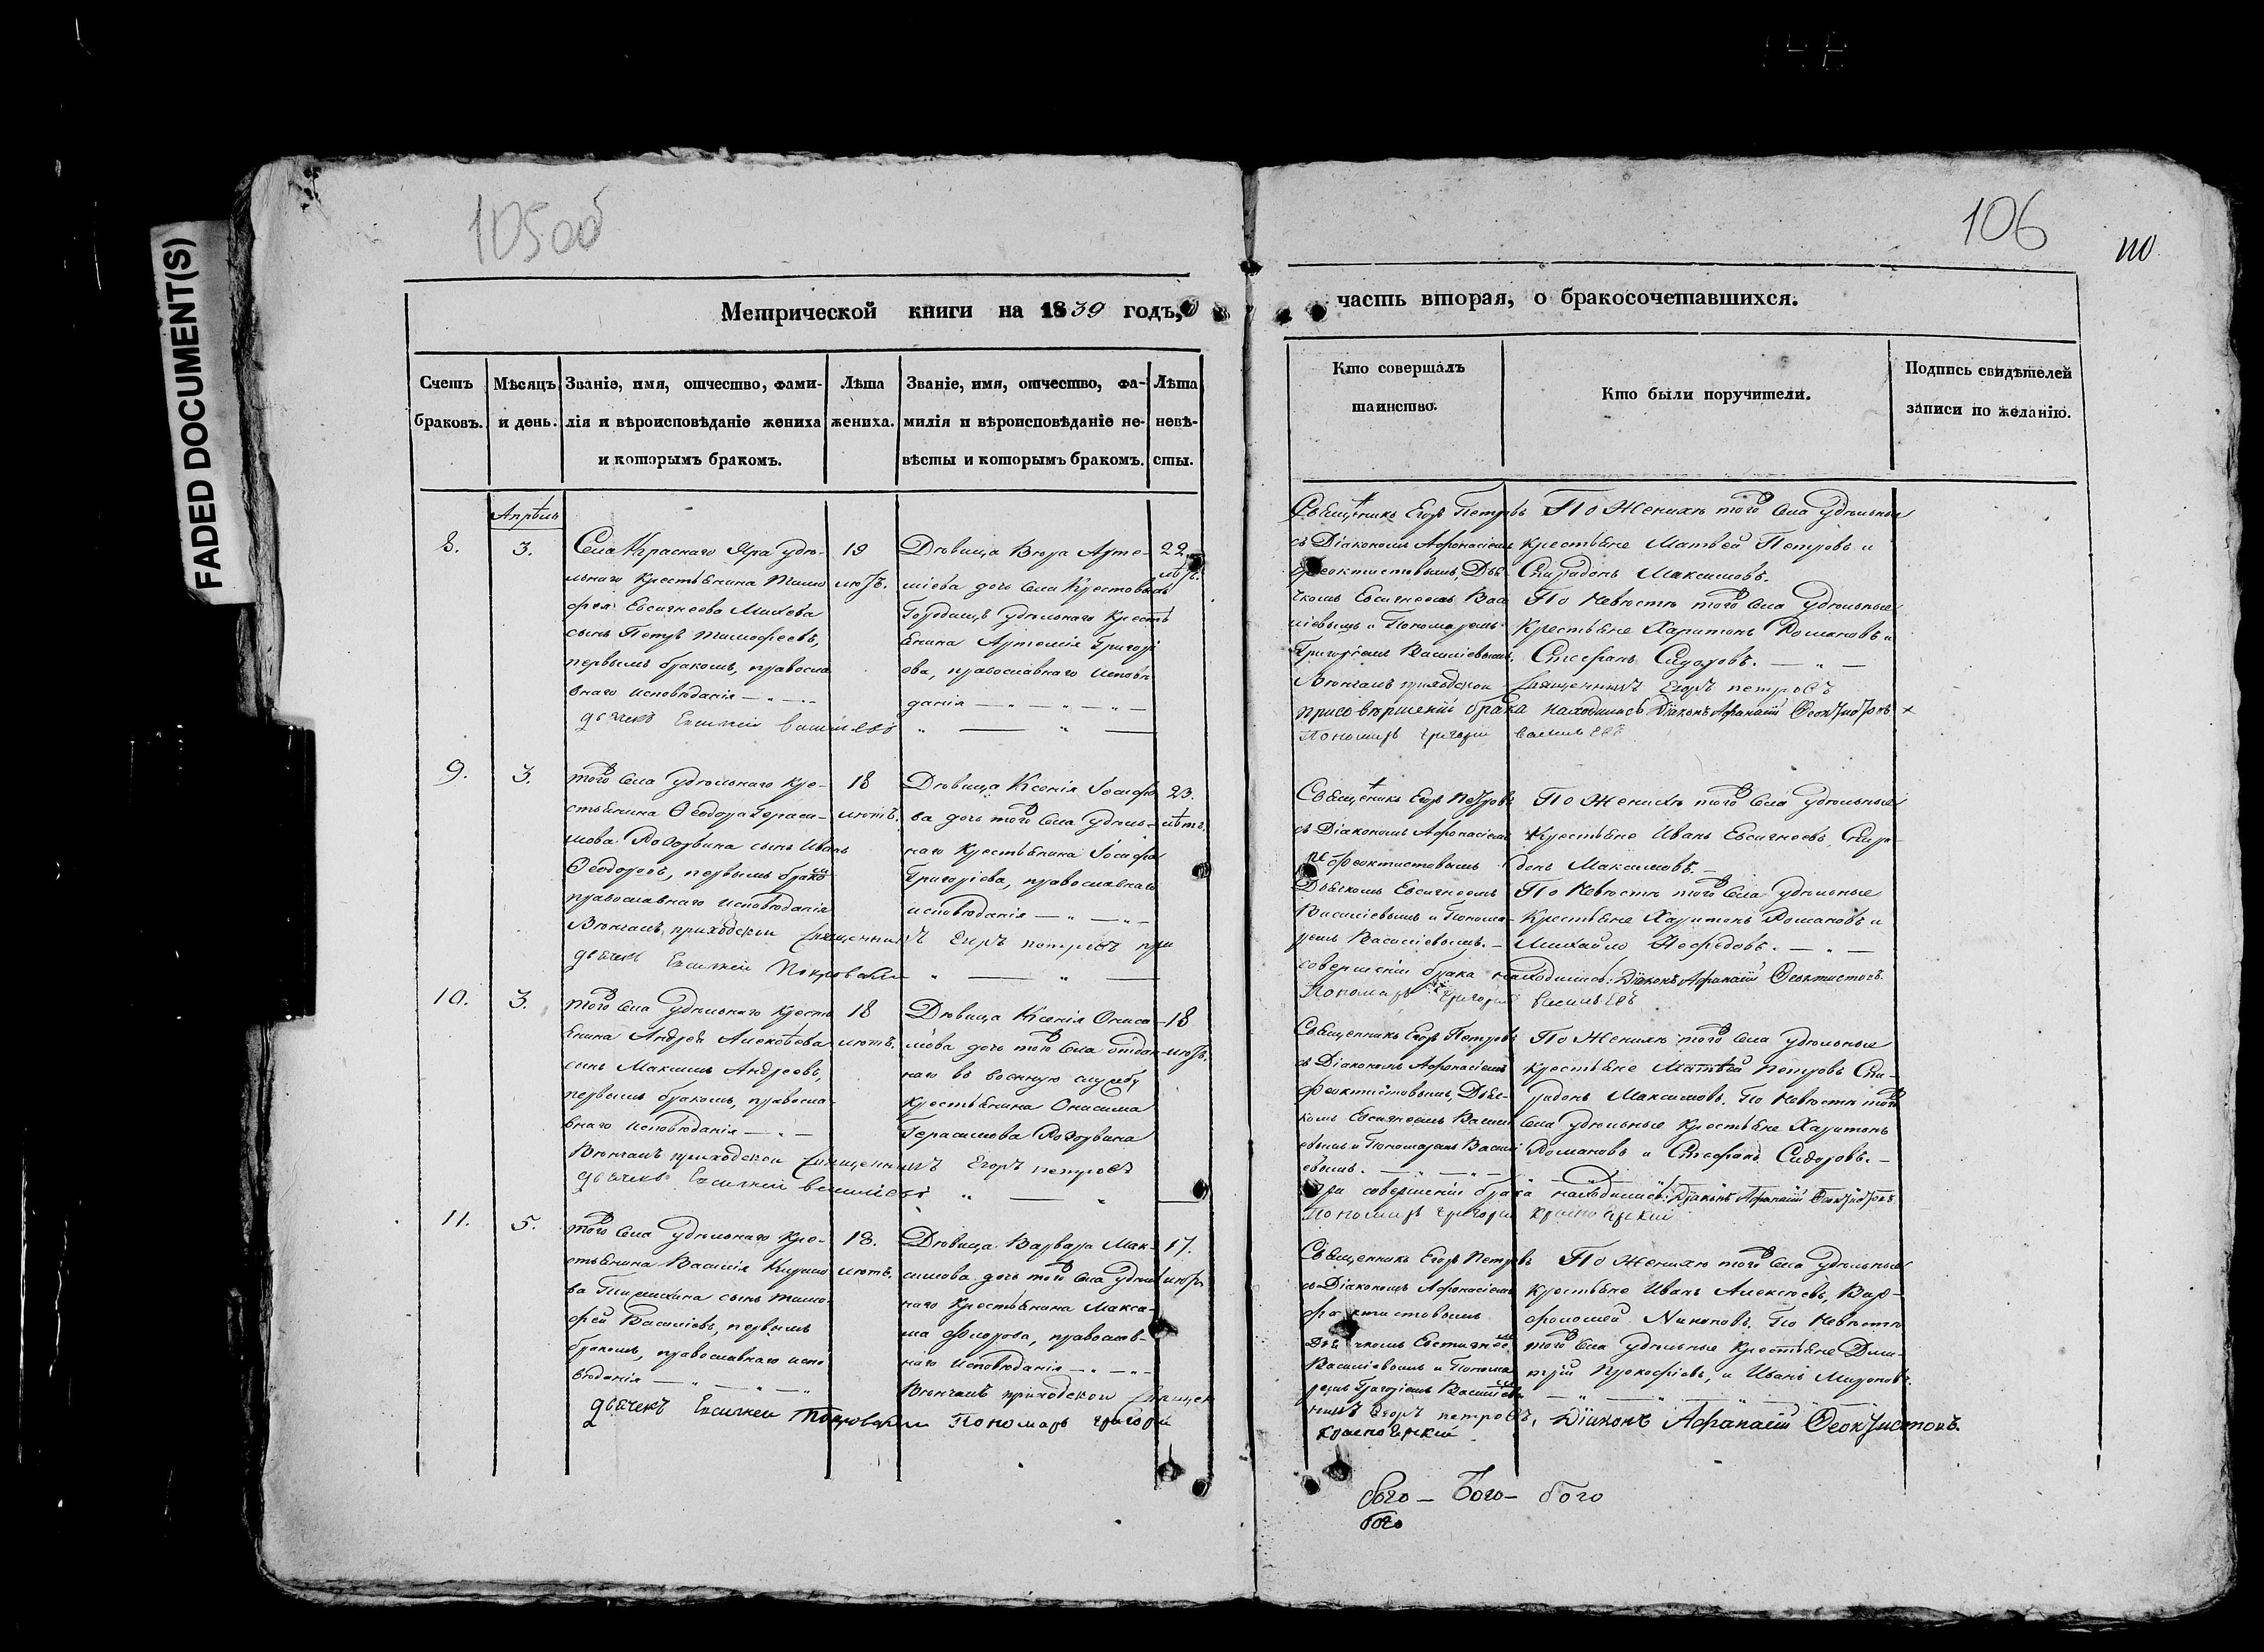 FADED DOCUMENT(S)
105 об
106
110
Метрической книги на 1839 годъ,
часть вторая, о бракосочетавшихся.
Счетъ браковъ.
Мѣсяцъ и день.
Званіе, имя, отчество, фами-
лія и вѣроисповѣданіе жениха
и которымъ бракомъ.
Лѣта
жениха.
Званіе, имя, отчество, фа-
милія и вѣроисповѣданіе не-
вѣсты и которымъ бракомъ.
Лѣта
невѣ-
сты.
Кто совершалъ
таинство.
Кто были поручители.
Подпись свидѣтелей
записи по желанію.
Апрѣль
8.
3.
Села Краснаго Яра удѣ-
льнаго Крестьянина Тимо
фея Евсигнеева Михева
сынъ Петръ Тимофеевъ,
первымъ бракомъ, правосла
внаго исповѣданія
19
лѣтъ.
Дѣвица Вера Арте-
міева дочь Села Крестовыхъ
Городищъ удѣльнаго Кресть
янина Артемія Григорі
ева, православнаго исповѣ
данія
22
лѣтъ.
Священникъ Егоръ Петровъ
съ Діакономъ Афонасіемъ
Феоктистовымъ, Дья-
чкомъ Евсигнеемъ Васи
ліевымъ и Пономаремъ
Григоріемъ Василіевымъ.
По Женихѣ того Села Удѣльные
крестьяне Матвей Петровъ и
Спиридонъ Максимовъ.
По Невѣстѣ того Села Удѣльные
Крестьяне Харитонъ Романовъ и
Стефанъ Сидоровъ.
Вѣнчалъ приходской Священникъ Егоръ Петровъ
при совершеніи брака находились Діаконъ Афанасій Феоктистовъ
дьячекъ Евсигней Василіевъ
Пономарь Григорій Василіевъ
9.
3.
того Села удѣльнаго Кре-
стьянина Ѳеодора Гераси-
мова Розорвина сынъ Иванъ
Ѳеодоровъ, первымъ бракомъ
православнаго исповѣданія
18
лѣтъ.
Дѣвица Ксенія Іосифо
ва дочь того Села Удѣль-
наго Крестьянина Іосифа
Григоріева, православнаго
исповѣданія
23.
лѣтъ.
Священникъ Егоръ Петровъ
съ Діакономъ Афонасіемъ
Феоктистовымъ
Дьячкомъ Евсигнеемъ
Василіевымъ и Понома-
ремъ Василіевымъ.
По Женихѣ того Села Удѣльные
Крестьяне Иванъ Евсигнеевъ, Спири-
донъ Максимовъ.
По Невѣстѣ того Села удѣльные
Крестьяне Харитонъ Романовъ и
Михайло Нефедовъ.
Вѣнчалъ приходской Священникъ Егоръ Петровъ при
совершеніи брака находились: Діаконъ Афанасій Феоктистовъ.
дьячекъ Евсигней Покровскій
Пономарь Григорій Василіевъ
10.
3.
того Села Удѣльнаго Кресть
янина Андрея Алексѣева
сынъ Максимъ Андреевъ,
первымъ бракомъ, правосла-
внаго исповѣданія
18
лѣтъ.
Дѣвица КсеніяОниси-
мова дочь того Села отдан-
наго въ военную службу
Крестьянина Онисима
Герасимова Розорвина
18
лѣтъ.
Священникъ Егоръ Петровъ
съ Діакономъ Афонасіемъ
Феоктистовымъ, Дьяч-
комъ Евсигнеемъ Васили
евымъ и Пономаремъ Васили
евымъ.
По Женихѣ того Села Удѣльные
крестьяне Матвей Петровъ Спи-
ридонъ Максимовъ. По Невѣстѣ того
Села удѣльные Крестьяне Харитонъ
Романовъ и Стефанъ Сидоровъ.
Вѣнчалъ приходской Священникъ Егоръ Петровъ
при совершеніи брака находились: Діаконъ Афанасій Феоктистовъ
дьячекъ Евсигней Василіевъ
Пономарь Григорій Красноярскій
11.
5.
того Села Удѣльнаго Кре-
стьянина Василія Кирило
ва сынъ Тимо-
фей Василіевъ, первымъ
бракомъ, православнаго испо
вѣданія
18.
лѣтъ.
Дѣвица Варвара Мак-
симова дочь того Села Удѣль
наго Крестьянина Макси-
ма Флорова, православ-
наго исповѣданія
17.
лѣтъ
Священникъ Егоръ Петровъ
съ Діакономъ Афонасіемъ
Феоктистовымъ
Дьячкомъ Евстигнеемъ
Василіевымъ и Понома
ремъ Григоріемъ Василіевымъ
По Женихѣ того Села Удѣльные
Крестьяне Иванъ Алексѣевъ, Вар-
фоломей Никоновъ. По Невѣстѣ
того Села Удѣльные Крестьяне Дми-
трій Прокофіевъ, и Иванъ Мироновъ.
Вѣнчалъ приходской Священ
никъ Егоръ Петровъ, Діаконъ Афанасій Феоктистовъ.
дьячекъ Евсигней Покровскій Пономарь Григорій
Красноярскій
бого - Бого - бого
бого